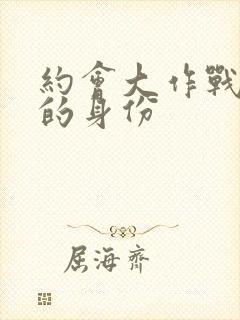 約會大作戰
的身份
屈海齊